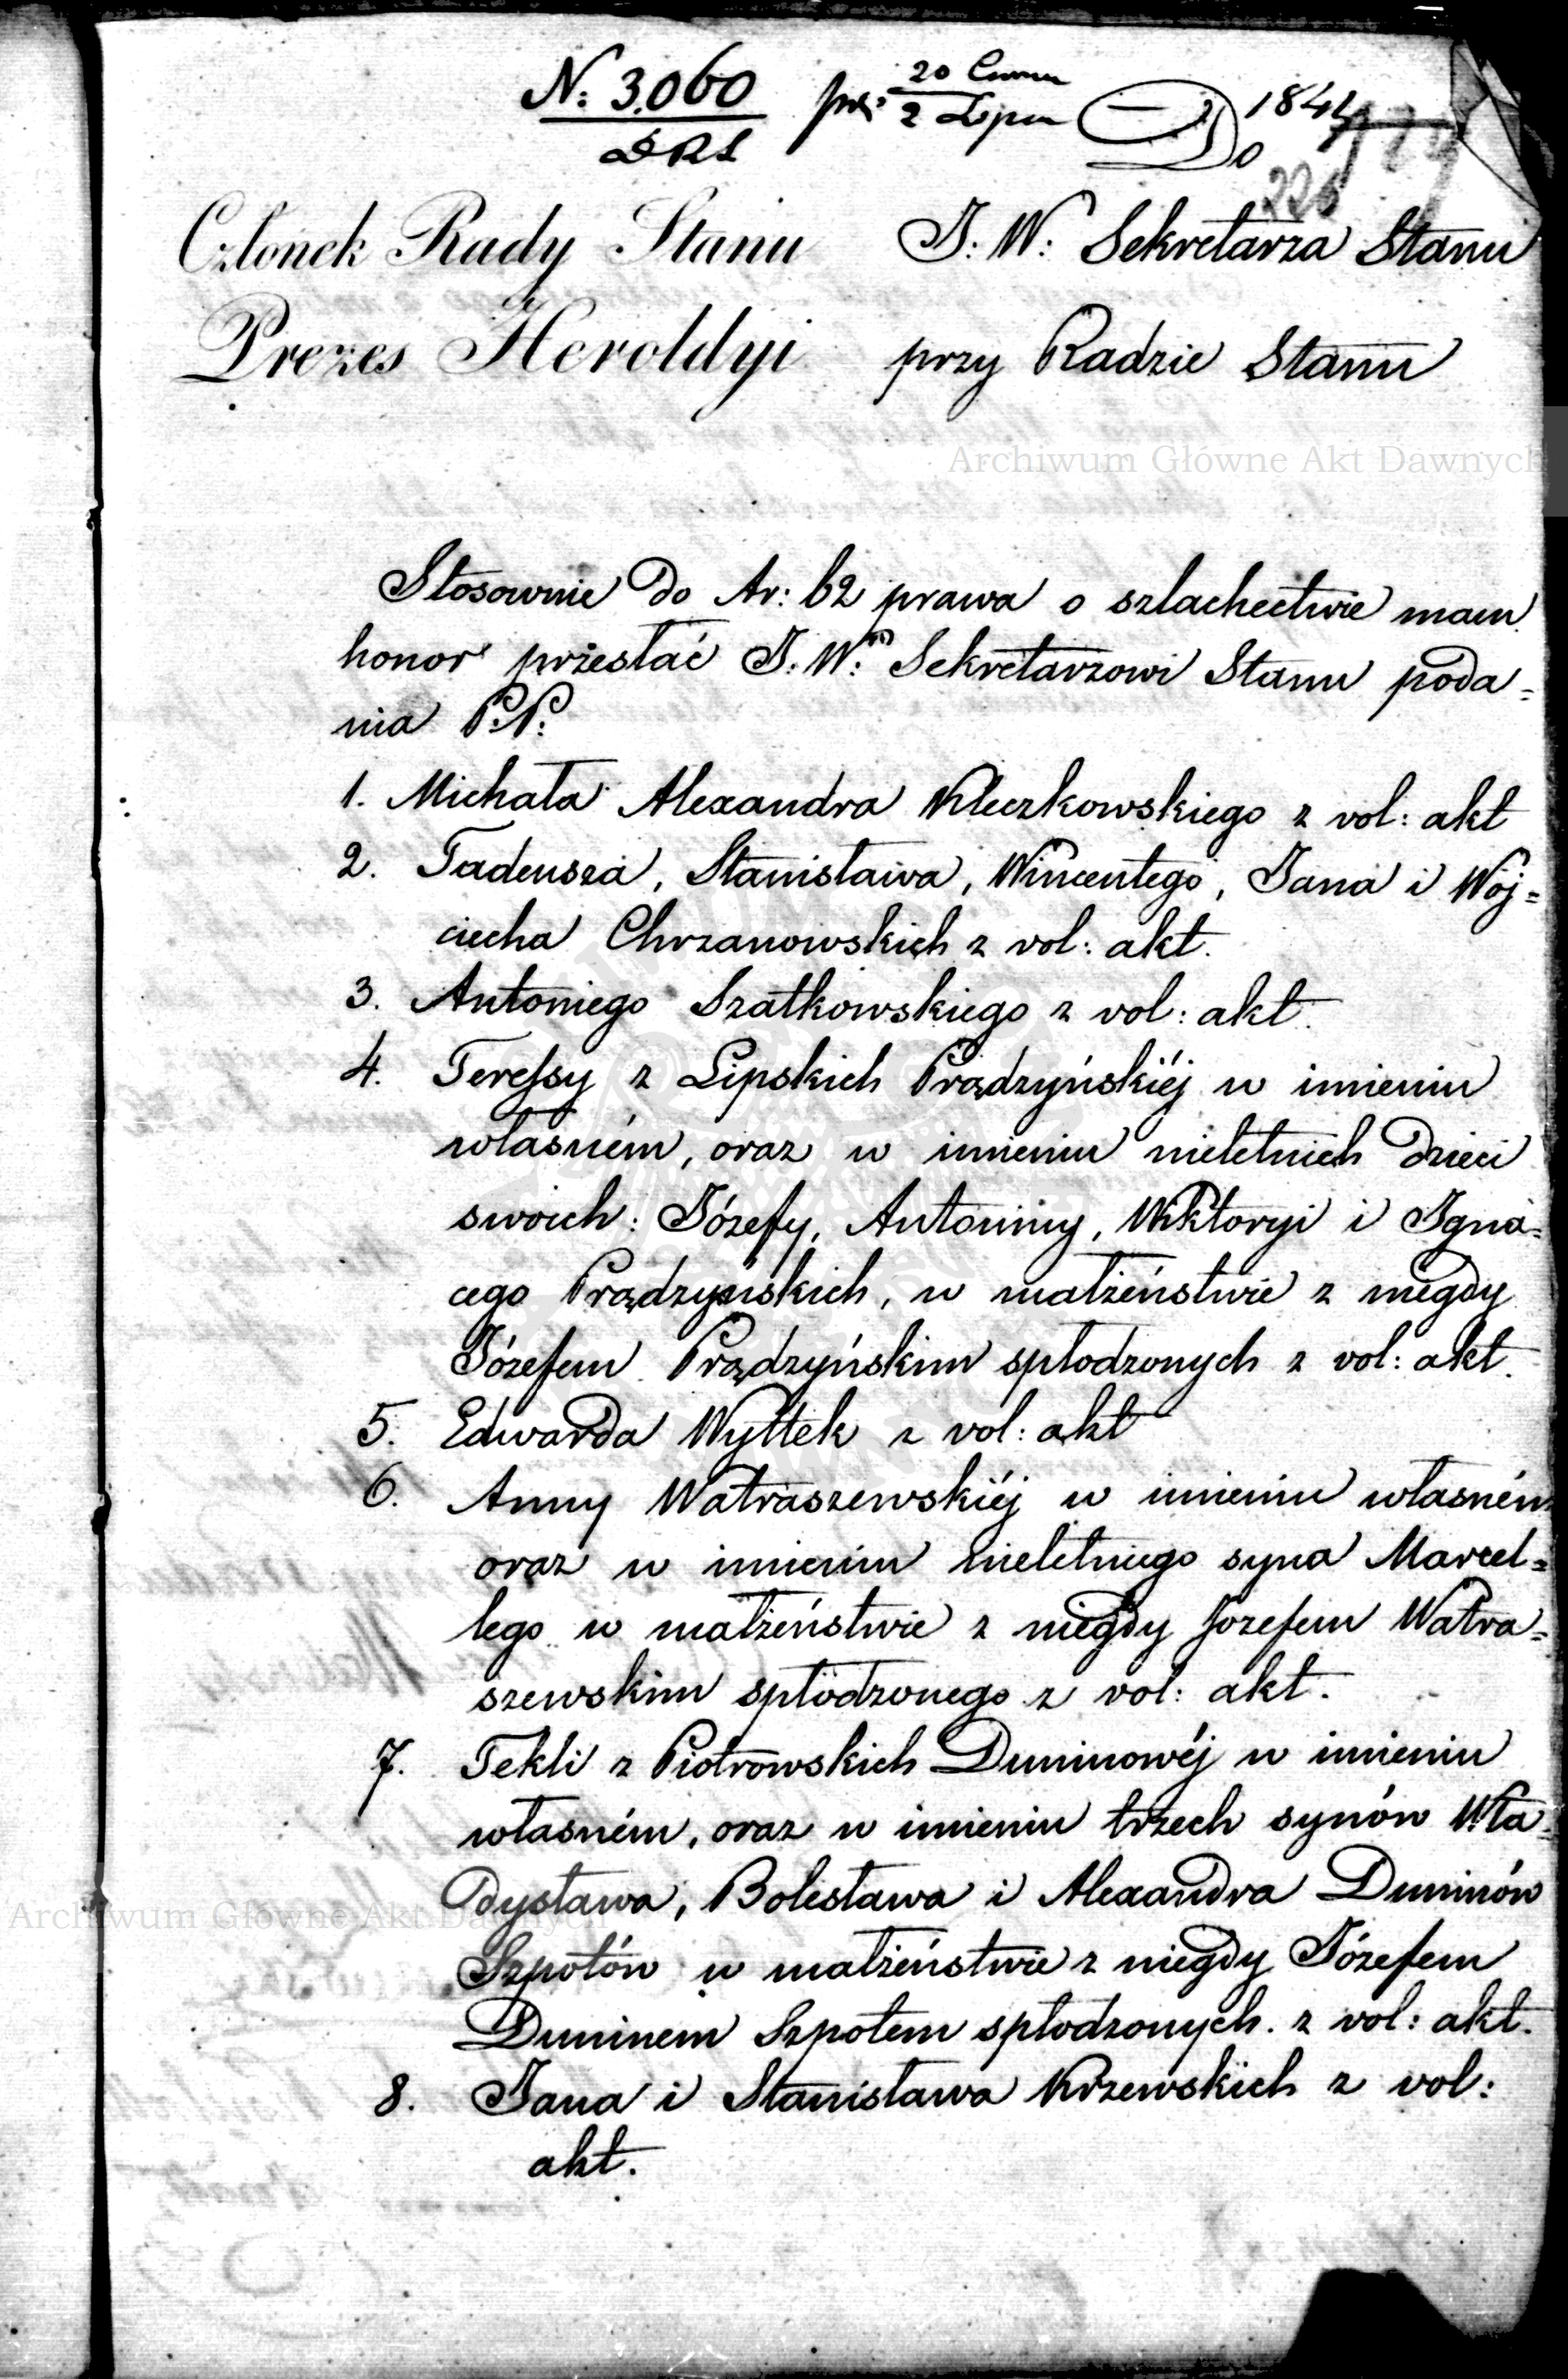 N: 3060
DRS
20 Czerw
2 Lipca
1841
Do
226
Członek Rady Stanu
Prezes Heroldyi
J. W: Sekretarza Stanu
przy Radzie Stanu
Archiwum Główne Akt Dawnych
Stosownie do Ar: 62 prawa o szlachectwie mam
honor przesłać J. W: Sekretarzowi Stanu poda=
nia P.P.
1. Michała Alexandra Kleczkowskiego z vol: akt
2. Tadeusza, Stanisława, Wincentego, Jana i Woj=
ciecha Chrzanowskich z vol: akt.
3. Antoniego Szatkowskiego z vol: akt.
4. Teressy z Lipskich Prądzyńskiéj w imieniu
własném, oraz w imieniu nieletnich dzieci
swoich: Józefy, Antoniny, Wiktoryi i Igna=
cego Prądzyńskich, w małżeństwie z niegdy
Józefem Prądzyńskim spłodzonych z vol: akt.
5. Edwarda Wyttek z vol: akt
6. Anny Watraszewskiéj w imieniu własném
oraz w imieniu nieletniego syna Marcel=
lego w małżeństwie z niegdy Jozefem Watra=
szewskim spłodzonego z vol: akt.
7. Tekli z Piotrowskich Duninowéj w imieniu
własném, oraz w imieniu trzech synów Wła=
dysława, Bolesława i Alexandra Duninów
Archiwum Główne Akt Dawnych
Szpotów w małżeństwie z niegdy Józefem
Duninem Szpotem spłodzonych. z vol: akt.
8. Jana i Stanisława Krzewskich z vol:
akt.